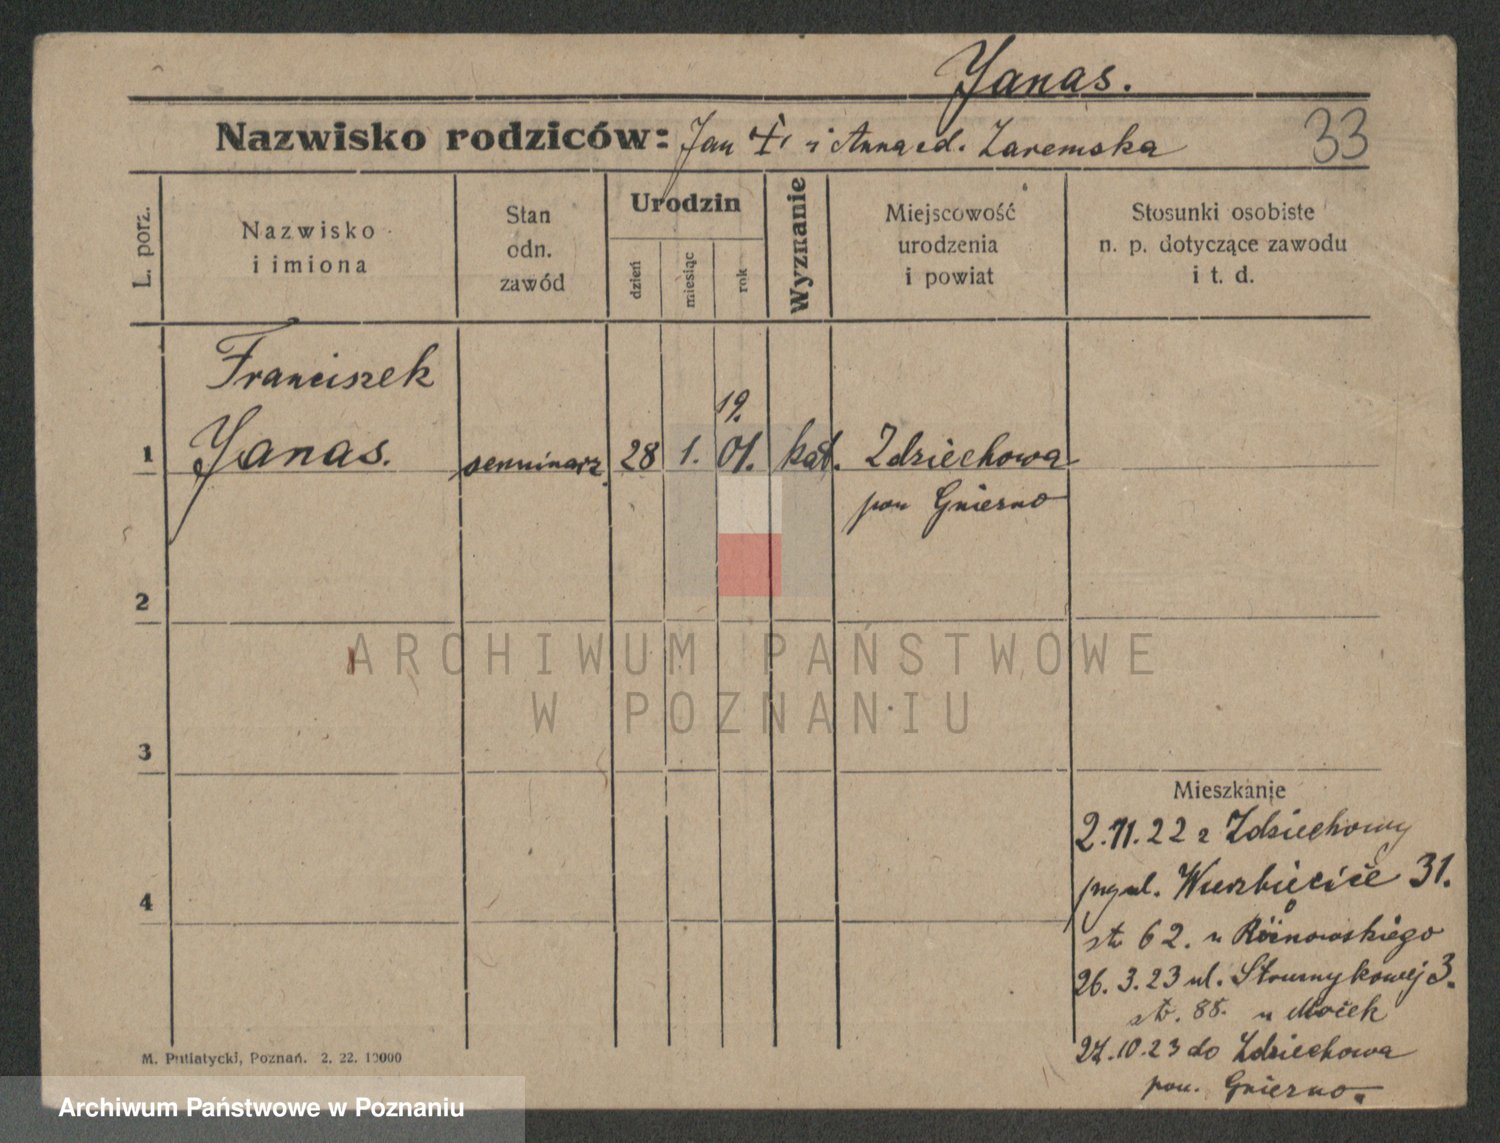 Janas.
Nazwisko rodziców: Jan i Anna Zaremska
33
L. porz.
Nazwisko
i imiona
Stan
odn.
zawód
Urodzin
dzień
miesiąc
rok
Wyznanie
Miejscowość
urodzenia
i powiat
Stosunki osobiste
n. p. dotyczące zawodu
i t. d.
Franciszek
19.
1 Janas. seminarz. 28 1. 01. kat. Zdziechowa
pow Gniezno
2
ARCHIWUM PAŃSTWOWE
W POZNANIU
3
Mieszkanie
2.11.22 z Zdziechowy
ul. Wierzbięcice 31.
4
str 62. u Różnowskiego
26. 3. 23 ul. Strumykowej 3.
str. 88. u Moček
27.10.23 do Zdziechowa
pow. Gniezno.
M. Putiatycki, Poznań. 2. 22. 10000
Archiwum Państwowe w Poznaniu